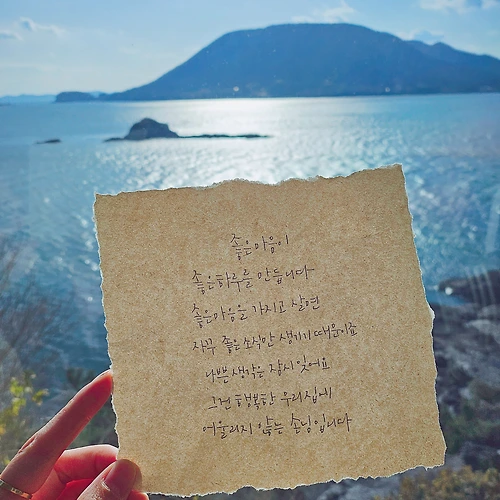 좋은 마음이
좋은 하루를 만듭니다
좋은 마음을 가지고 살면
자꾸 좋은 소식만 생기기 때문이죠
나쁜 생각은 잠시 잊어요
그건 행복한 우리 집에
어울리지 않는 손님입니다